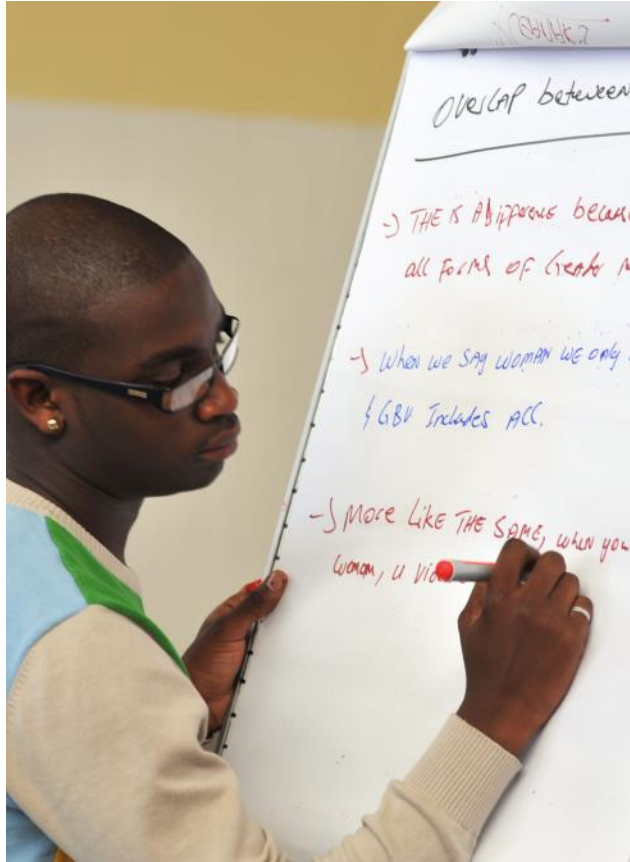 OVERLAP between
-> THE IS A Difference because
all forms OF Gender
-> When we say WOMAN we only
& GBV Includes ALL.
-> More like THE SAME, when you
woman, u